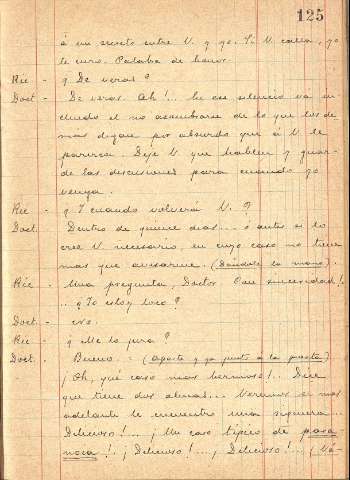 125
á un secreto entre V. y yo. Si V. calla, yo
le curo. Palabra de honor.
Ric - ¿De veras?
Doct - De veras. Ah!... En ese silencio va in-
cluido el no asombrarse de lo que los de-
más digan por absurdo que á V. le
parezca. Deje V. que hablen y guar-
de las discusiones para cuando yo
venga.
Ric - ¿Y cuando volverá V.?
Doct. Dentro de quince días... ó antes si lo
cree V. necesario, en cuyo caso no tiene
mas que avisarme. (Dándole la mano).
Ric - Una pregunta, Doctor. Con sinceridad!
... ¿Yo estoy loco?
Doct - No.
Ric - ¿Me lo jura?
Doct. Bueno. - (Aparte y ya junto á la puerta)
¡Oh, qué caso mas hermoso!.. Dice
que tiene dos almas... Veremos si mas
adelante le encuentro una siquiera...
Delicioso!... ¡Un caso típico de para-
noia!. ¡Delicioso!... ¡Delicioso!... ¡